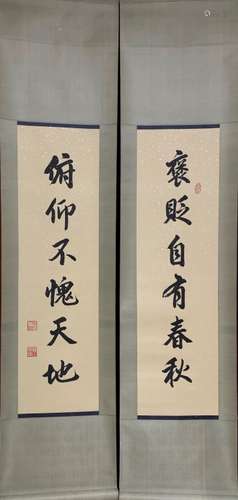 褒貶自有春秋
俯仰不愧天地